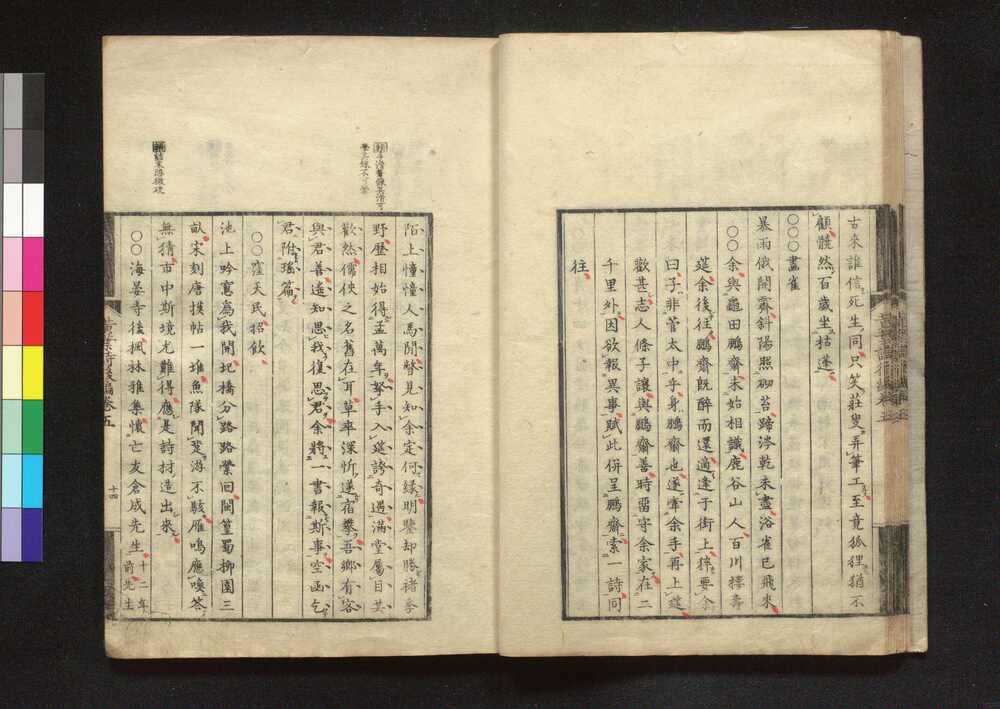 古來誰信死生同只笑莊叟弄筆工至竟狐狸猶不
顧髐然百歲坐枯蓬
○○○畫雀
暴雨俄開霽斜陽照砌苔蹄涔乾未盡浴雀已飛來
○○余與龜田鵬齋未始相識鹿谷山人百川擇壽
筵余後往鵬齋既醉而還適逢于街上猝要余
曰子非菅太中乎身鵬齋也遂牽余手再上筵
歡甚志人條子讓與鵬齋善時留守余家在二
千里外因欲報異事賦此併呈鵬齋索一詩同
往
陌上憧憧人馬閒瞥見知余定何緣明鑒却勝褚季
野歷相始得孟萬年拏手入筵誇奇遇滿堂屬目共
歡然儒俠之名舊在耳草率深忻遂宿攀吾鄉有客
與君善遙知思我復思君余將一書報斯事空函乞
君附瑤篇
○○窪天民招飲
池上吟窩為我開圯橋分路路縈回閩篁蜀柳園三
畝宋刻唐摸帖一堆魚隊閒游不駭雁鳴應喚答
無猜市中斯境尤難得應是詩材造出來
○○海晏寺後楓林雅集懷亡友倉成先生十二年前先生
黃葉夕陽村舍詩後編卷五
十四